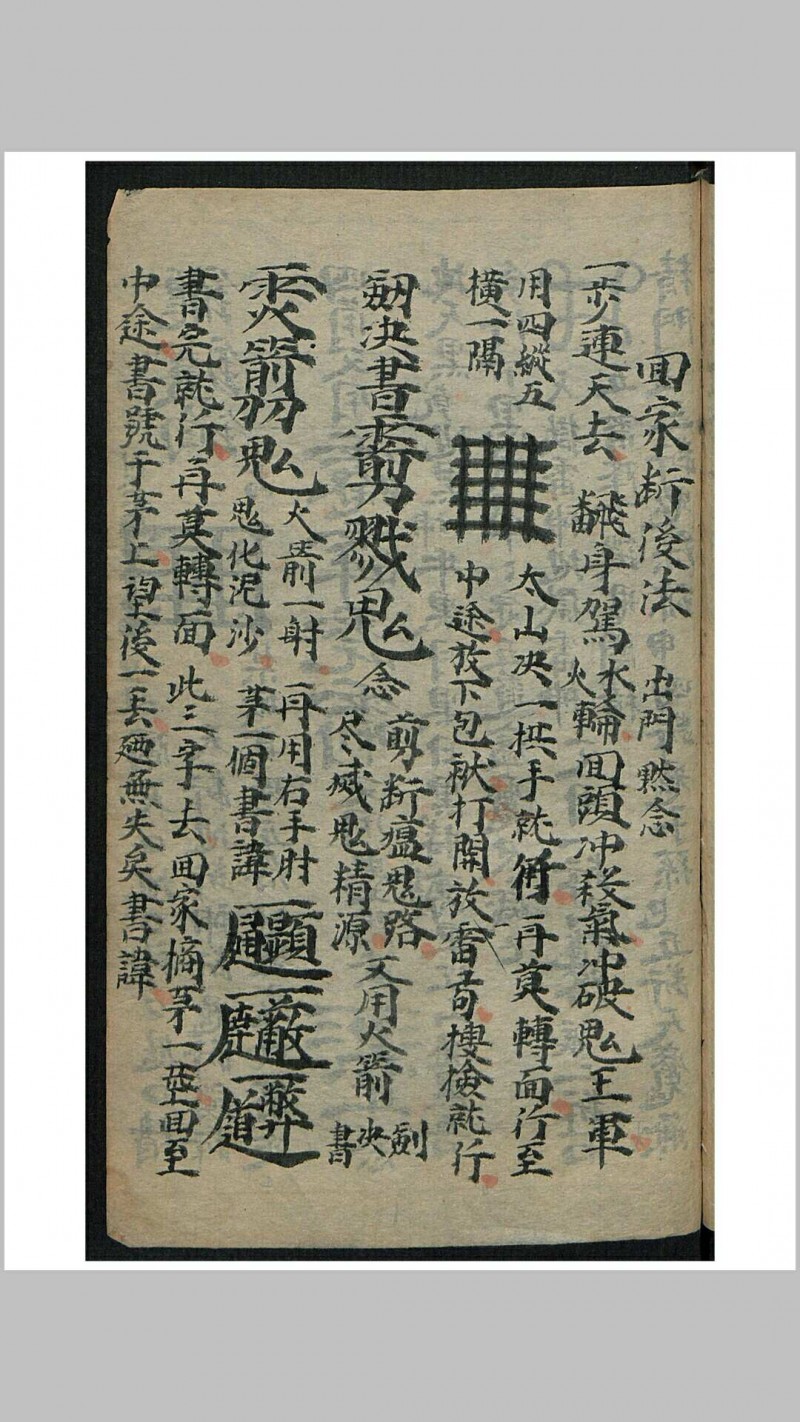 回家断後法 出門黙念
一步連天去 飜身駕水火輪回頭冲殺氣冲破鬼王軍
用四縱五橫一隔 太山决一拱手就行再莫轉面行至
中途放下包袱打開放雷 捜檢就行
剱决書 剪戮鬼 念 剪断瘟鬼路 尽滅鬼精源 又用火箭 剑决書
火箭 鬼 火箭一射 鬼化泥沙 再用右手肘 茅一個書諱
書完就行再莫轉面 此三字去回家摘茅一莖回至
中途書號于茅上望後一丢 無失矣書諱